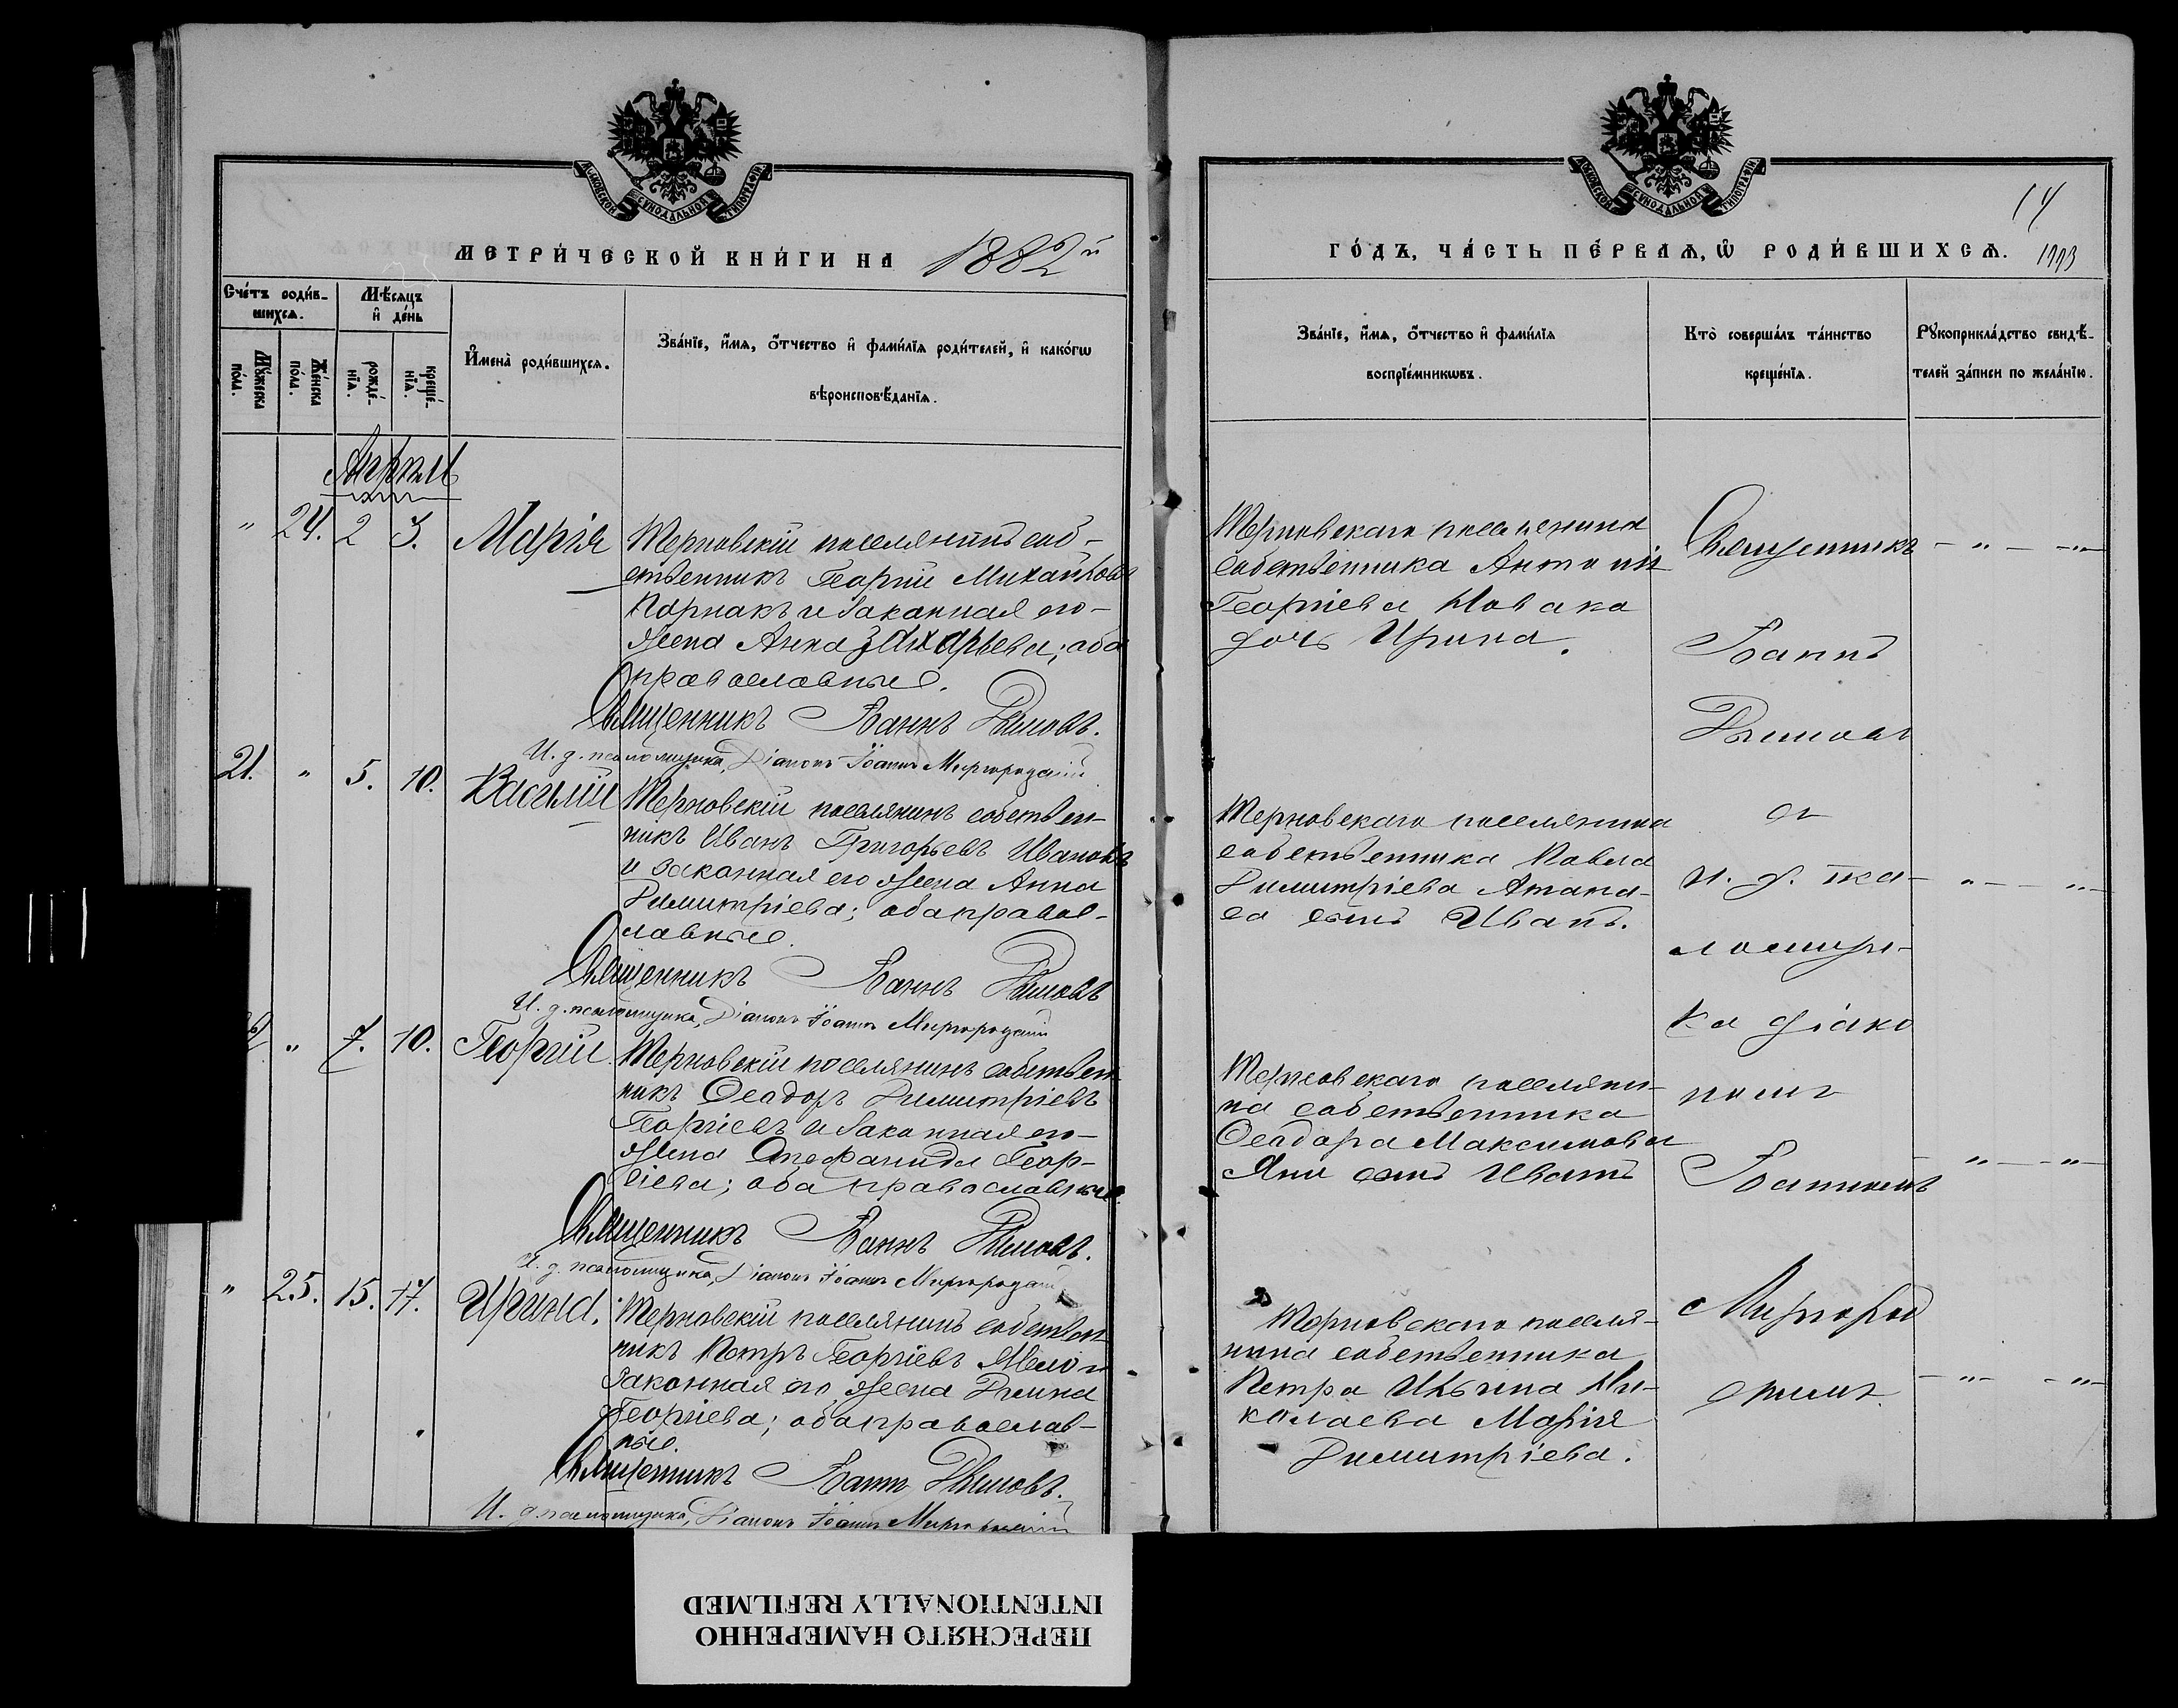 МОСКОВСКОЙ СУНОДАЛЬНОЙ ТИПОГРАФІИ
МЕТРИ́ЧЕСКОЙ КНИ́ГИ НА 1882й
Сче́тъ роди́вшихсѧ.
Мꙋ́жеска по́ла.
Же́нска по́ла.
Мѣ́сѧцъ и҆ де́нь
рожде́нїѧ.
креще́нїѧ.
И҆мена̀ роди́вшихсѧ.
Зва́нїе, и҆́мѧ, ѻ҆́тчество и҆ фами́лїѧ роди́телей, и҆ како́гѡ
вѣроисповѣ́данїѧ.
Апрѣль
" 24. 2 3. Марія
Терновскій поселянинъ соб-
ственникъ Георгій Михайловъ
Парнакъ и законная его
жена Анна Захарьева; оба
православные.
Священникъ Іоаннъ Дымовъ.
И. д. псаломщика, Діаконъ Іоаннъ Миргородскій
21. " 5. 10. Василій
Терновскій поселянинъ собствен-
никъ Иванъ Григорьевъ Ивановъ
и законная его жена Анна
Димитріева; оба правос-
лавные.
Священникъ Іоаннъ Дымовъ
И. д. псаломщика, Діаконъ Іоаннъ Миргородскій
" 7. 10. Георгій
Терновскій поселянинъ собствен-
никъ Ѳеодоръ Димитріевъ
Георгіевъ и законная его
жена Стефанида Геор-
гіева; оба православные.
Священникъ Іоаннъ Дымовъ.
И. д. псаломщика, Діаконъ Іоаннъ Миргородскій
" 25. 15. 17. Ирина.
Терновскій поселянинъ собствен-
никъ Петръ Георгіевъ и
законная его жена
Георгіева; оба православ-
ные.
Священникъ Іоаннъ Дымовъ.
И. д. псаломщика, Діаконъ Іоаннъ Миргородскій
МОСКОВСКОЙ СУНОДАЛЬНОЙ ТИПОГРАФІИ
14
ГО́ДЪ, ЧА́СТЬ ПЕ́РВАѦ, Ѡ҆ РОДИ́ВШИХСѦ.
1993
Зва́нїе, и҆́мѧ, ѻ҆́тчество и҆ фами́лїѧ
воспрїе́мникѡвъ.
Кто̀ соверша́лъ та́инство
креще́нїѧ.
Рꙋкоприкла́дство свидѣ́-
телей за́писи по жела́нїю.
Терновскаго поселянина
собственника Антонія
Георгіева Новака
дочь Ирина.
Терновскаго поселянина
собственника Павла
Димитріева Атана-
са сынъ Иванъ.
Терновскаго поселяни-
на собственника
Ѳеодора Максимова
Яни сынъ Иванъ
Терновскаго поселя-
нина собственника
Петра Ильина Ни-
колаева Марія
Димитріева.
Священникъ
Іоаннъ
Дымовъ
съ
и. д. пса-
ломщи-
ка діако
номъ
Іоанномъ
Миргород
скимъ.
ПЕРЕСНЯТО НАМЕРЕННО
INTENTIONALLY REFILMED